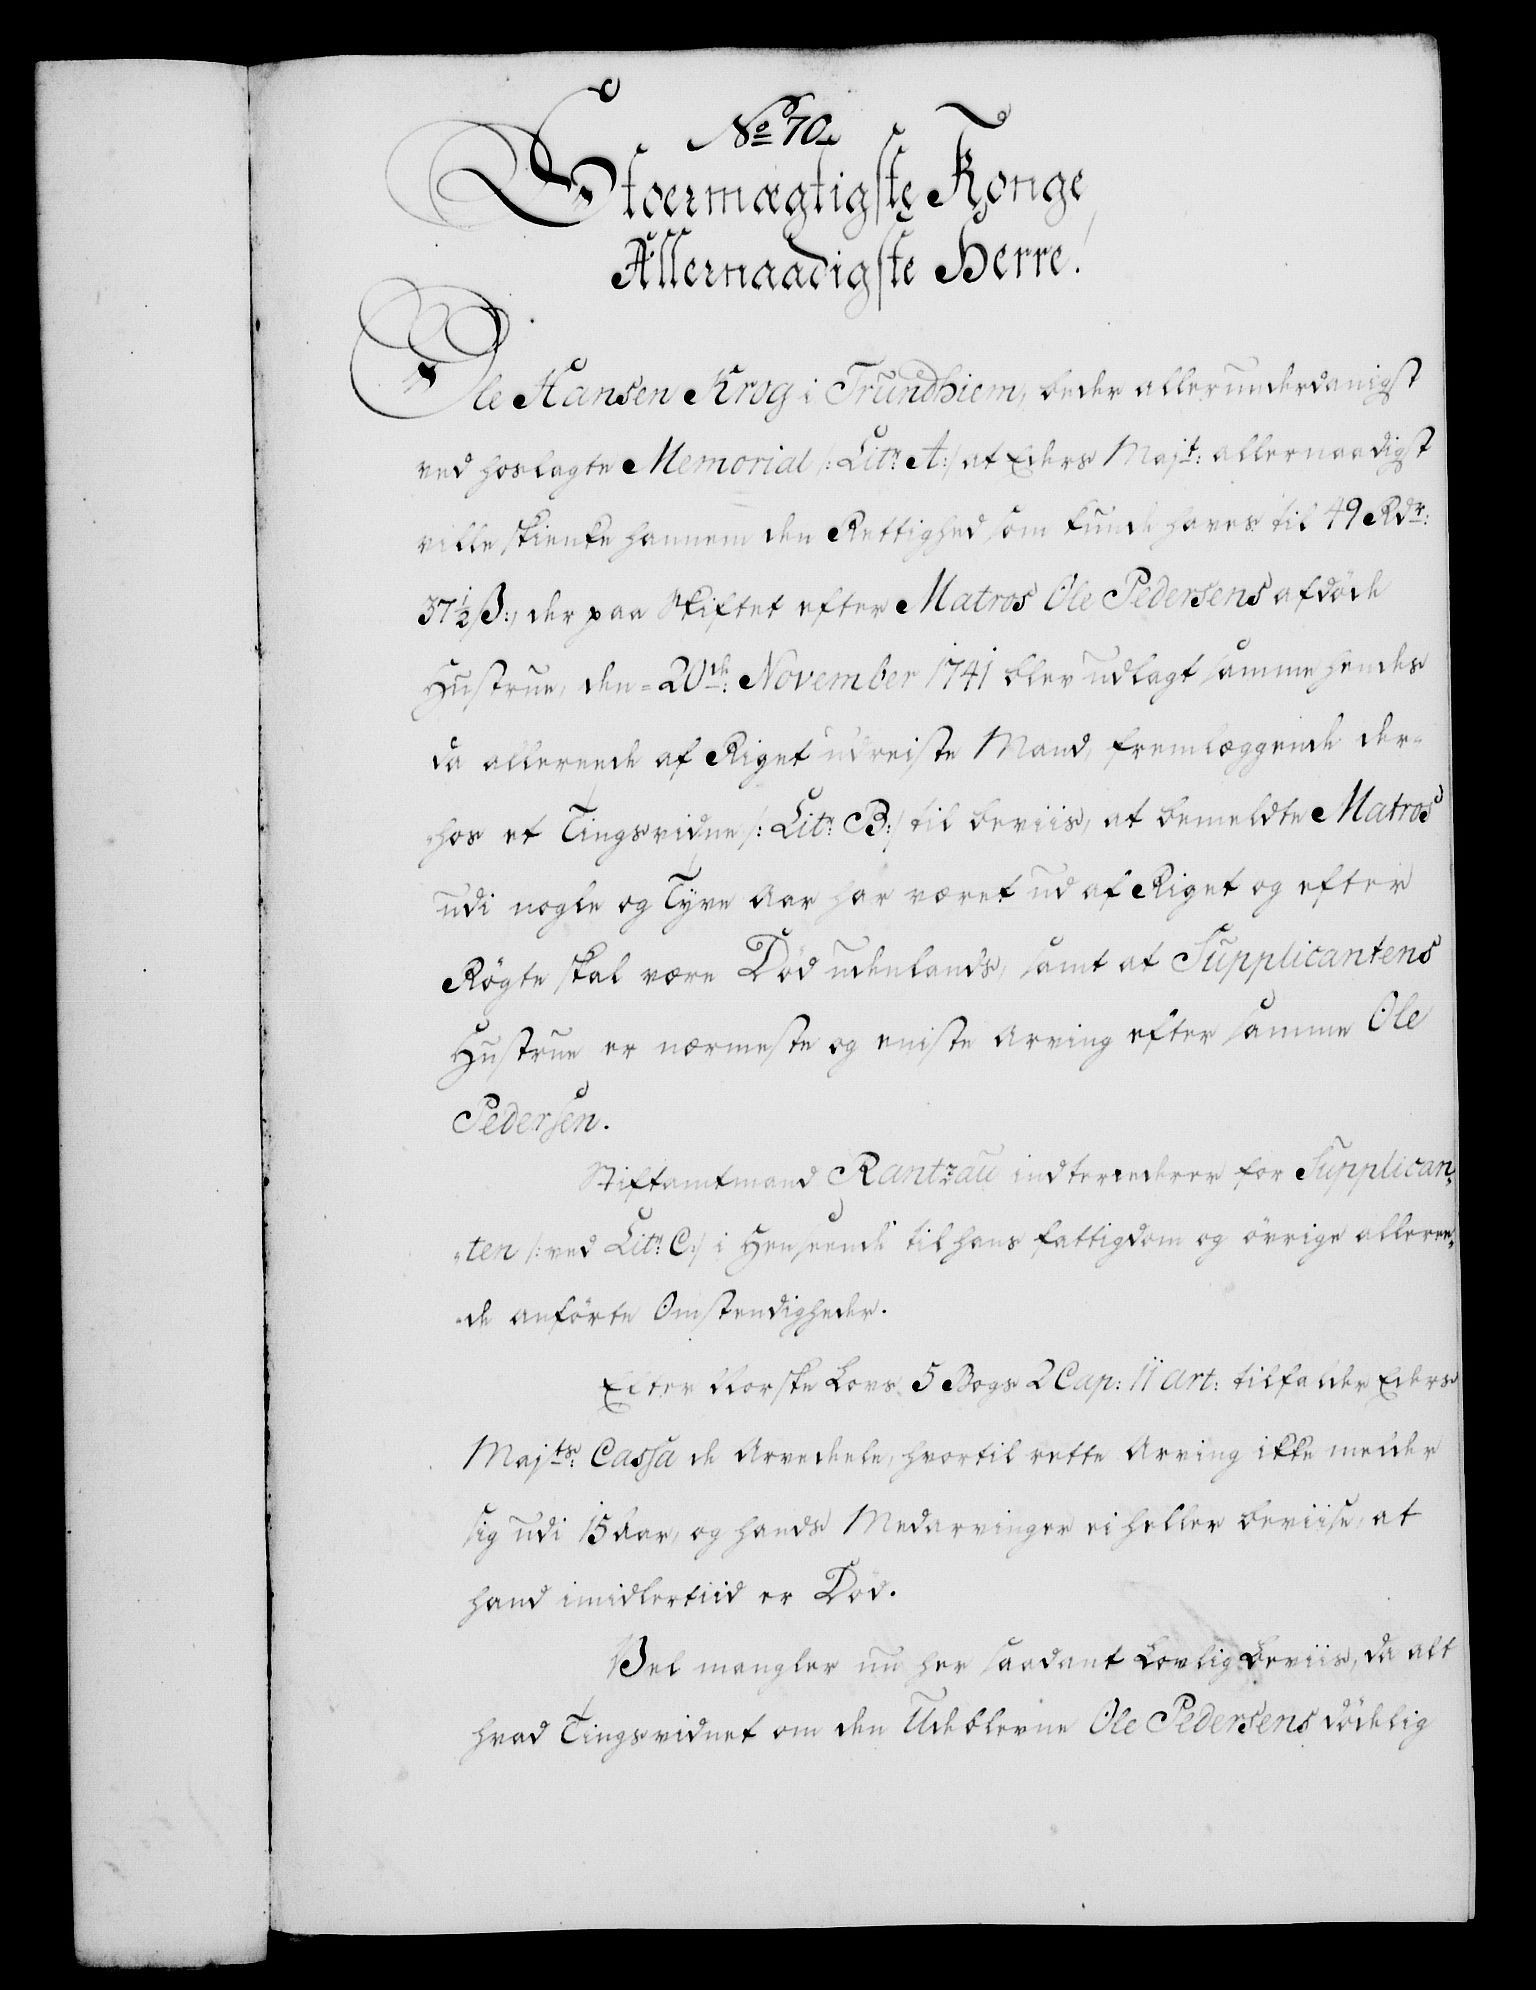 No 70.
Stoermægtigste Konge
Allernaadigste Herre!
Ole Hansen Krog i Trundhiem, beder allerunderdanigst
ved hoslagte Memorial /: Litr A:/ at Eders Majt: allernaadigst
ville skienke hannem den Rettighed som kunde haves til 49 Rdr:
37½ ß:, der paa Skiftet efter Matros Ole Pedersens afdøde
Hustrue, den 20de November 1741 blev udlagt samme hendes
da allereede af Riget udreiste Mand, fremlæggende der-
hos et Tingsvidne /: Litr B:/ til beviis, at bemeldte Matros
udi nogle og Tyve Aar har været ud af Riget og efter
Røgte skal være Død udenlands, samt at Supplicantens
Hustrue er nærmeste og eeniste Arving efter samme Ole
Pedersen.
Stiftamtmand Rantzau indtercederer for Supplican-
-ten /: ved Litr C:/ i Henseende til hans fattigdom og øvrige alleree-
-de anførte Omstendigheder.
Efter Norske Lovs 5 Bogs 2 Cap: 11 Art: tilfalder Eders
Majts: Cassa de Arvedeele, hvortil rette Arving ikke melder
sig udi 15 Aar, og hands Medarvinger ei heller beviise, at
hand imidlertiid er Død.
Vel mangler nu her saadant Lovlig Beviis, da alt
hvad Tingsvidnet om den Udeblevne Ole Pedersens dødelig